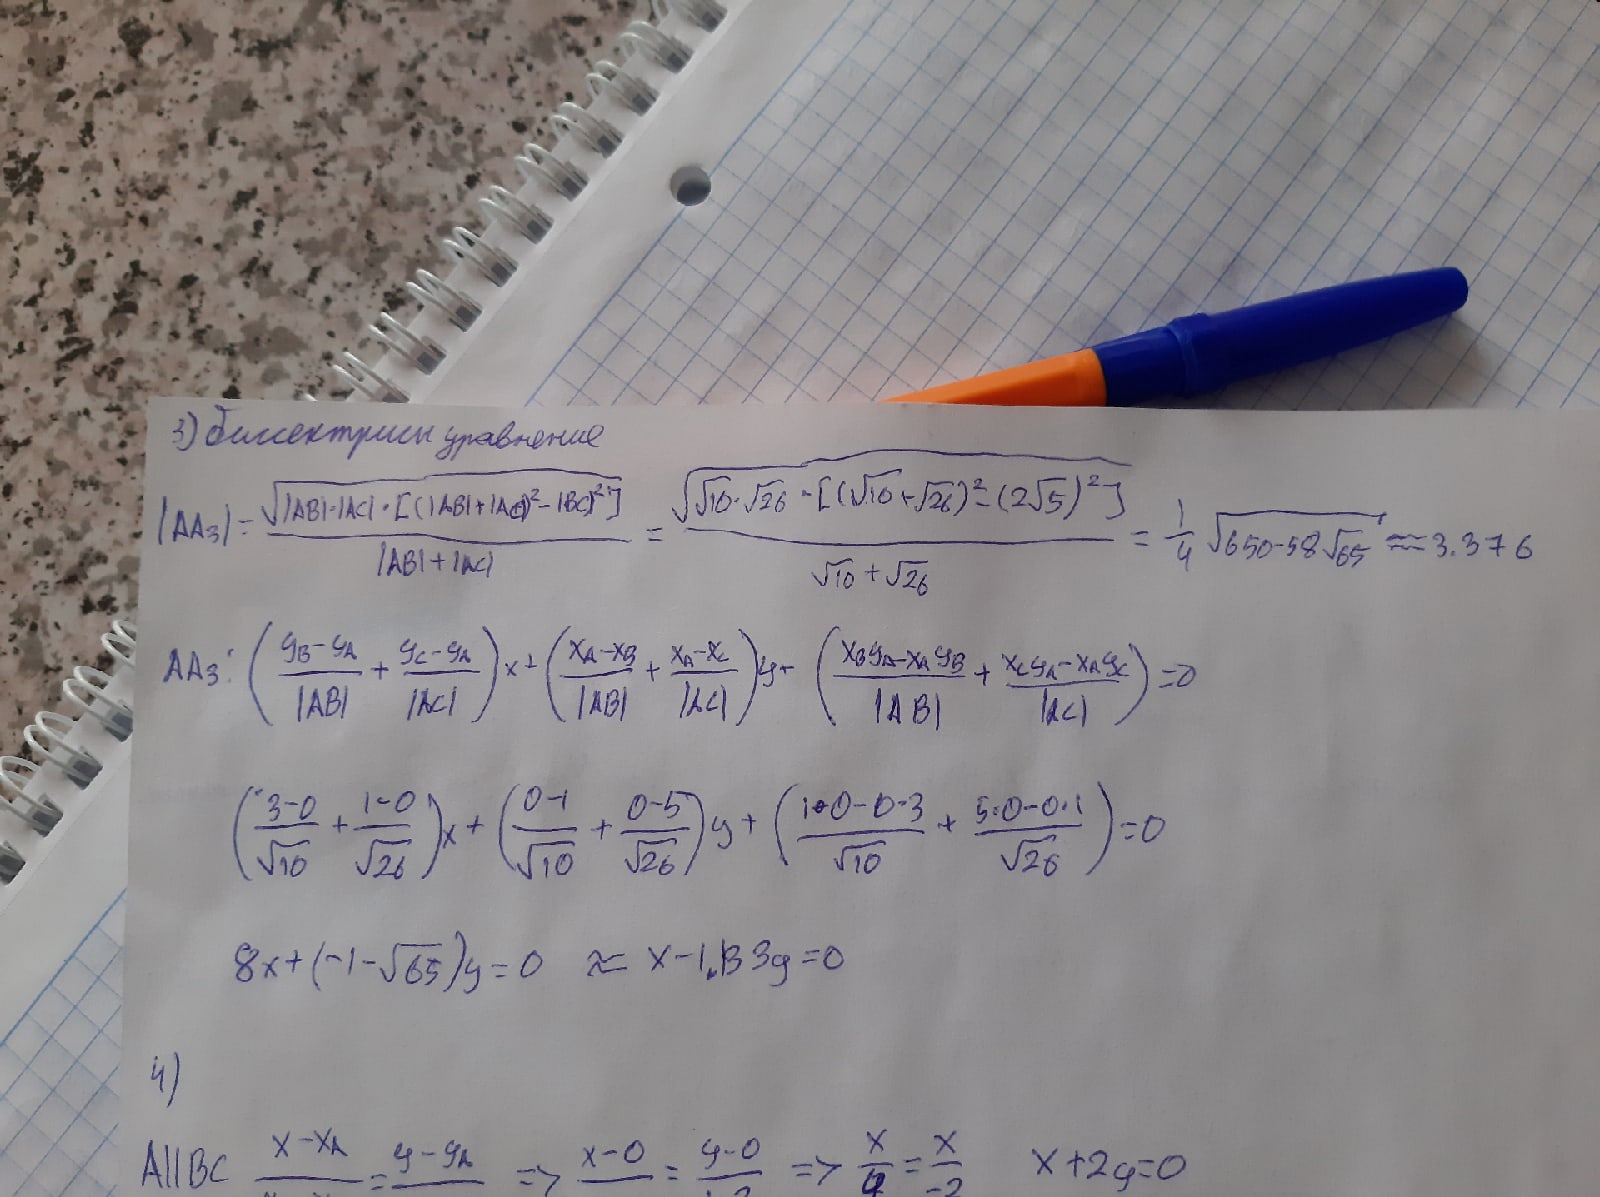 3) биссектрисы уравнение
|AA₃| = √(|AB|·|AC|·[(|AB|+|AC|)²-|BC|²]) / (|AB|+|AC|) = √(√10·√26·[(√10+√26)²-(2√5)²]) / (√10+√26) = 1/4 √(650-58√65) ≈ 3.376
AA₃: ((y_B-y_A)/|AB| + (y_C-y_A)/|AC|)x + ((x_A-x_B)/|AB| + (x_A-x_C)/|AC|)y + ((x_B y_A-x_A y_B)/|AB| + (x_C y_A-x_A y_C)/|AC|) = 0
((3-0)/√10 + (1-0)/√26)x + ((0-1)/√10 + (0-5)/√26)y + ((1·0-0·3)/√10 + (5·0-0·1)/√26) = 0
8x+(-1-√65)y=0 ≈ x-1.133y=0
4)
A||BC (x-x_A)/ = (y-y_A)/ => (x-0)/ = (y-0)/ => x/4 = x/-2 x+2y=0